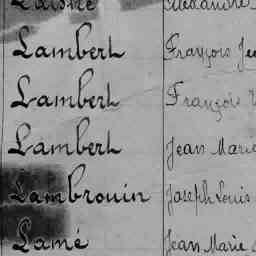 Alexandre
Lambert François Je
Lambert François
Lambert Jean Marie
Lambrouin Joseph Louis
Lamé Jean Marie